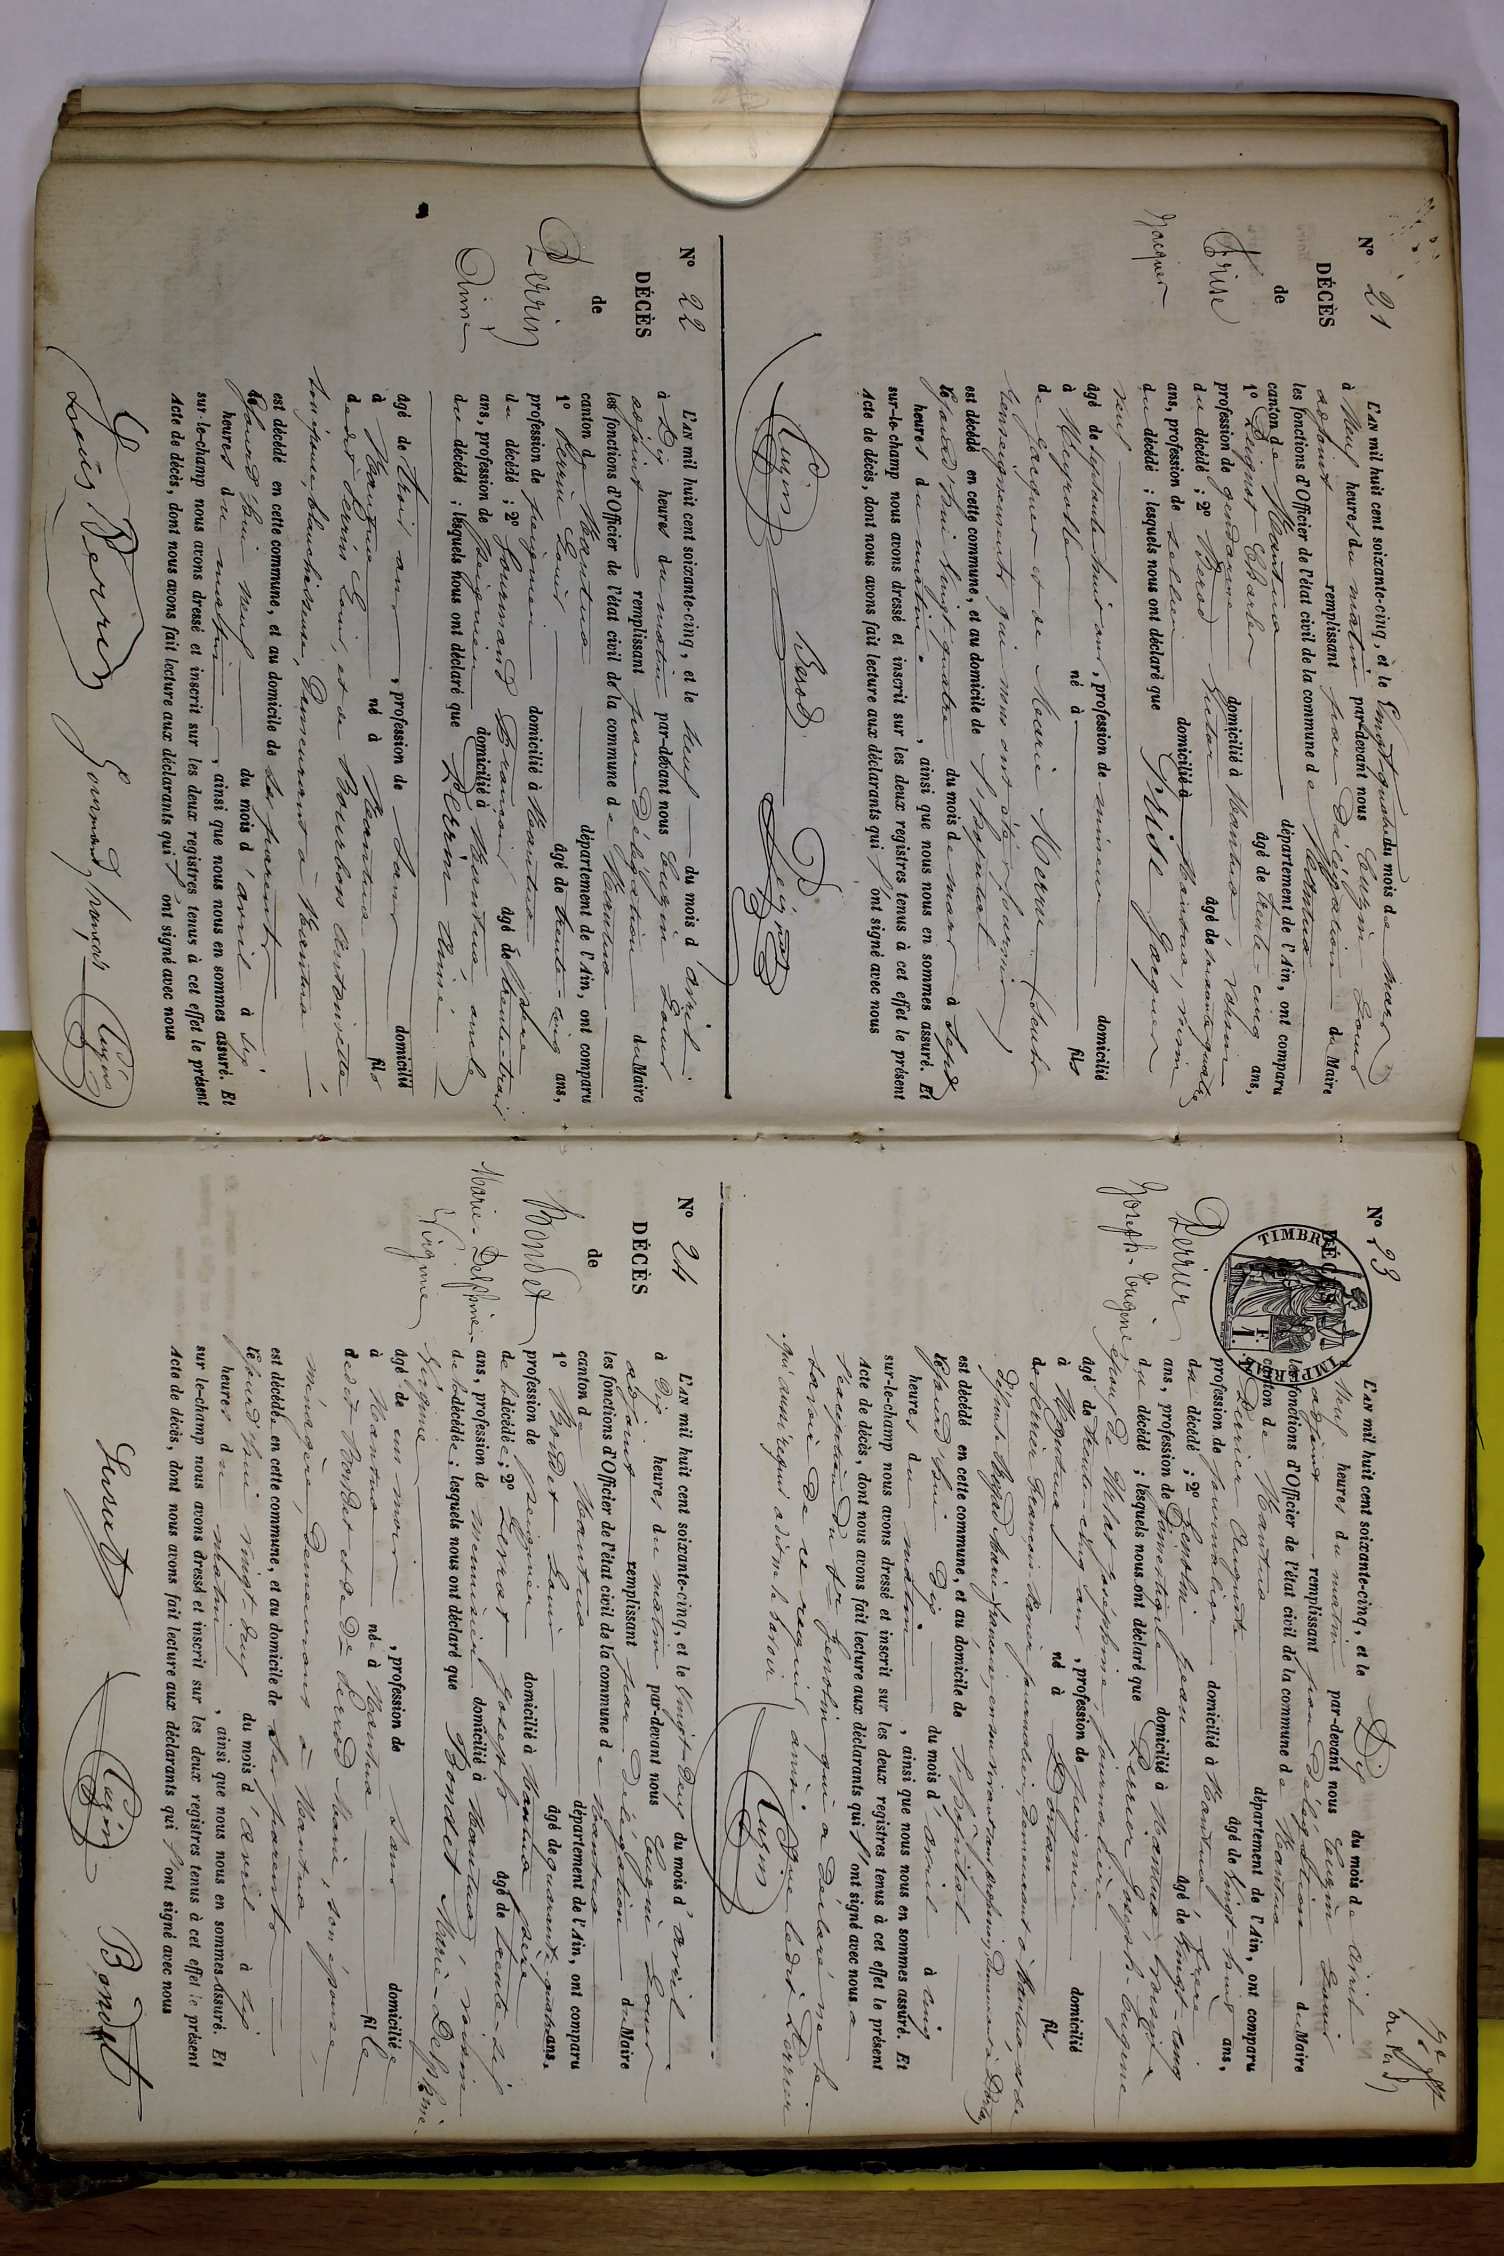 N° 21
DÉCÈS
de
Prise
Jacques
L'AN mil huit cent soixante-cinq, et le Vingt quatre du mois de mars
à Neuf heures du matin par-devant nous Eugin Louis
adjoint remplissant par délégation du Maire
les fonctions d'Officier de l'état civil de la commune de Nantua
canton de Nantua département de l'Ain, ont comparu
1° Charles âgé de trente-cinq ans,
profession de gendarme domicilié à Nantua, voisin
du décédé; 2° Berod Victor âgé de soixante quatre
ans, profession de sellier domicilié à Nantua, voisin
du décédé; lesquels nous ont déclaré que Prise Jacques
âgé de septante huit ans, profession de mineur domicilié
à Meyrolle né à fils
de Jacques et de Marie (seuls
renseignements qui nous ont été fournis)
est décédé en cette commune, et au domicile de l'hôpital
le jourd'hui vingt quatre du mois de mars à sept
heures du matin, ainsi que nous nous en sommes assuré. Et
sur-le-champ nous avons dressé et inscrit sur les deux registres tenus à cet effet le présent
Acte de décès, dont nous avons fait lecture aux déclarants qui ont signé avec nous
Berod
N° 22
DÉCÈS
de
Perrin
Aimé
L'AN mil huit cent soixante-cinq, et le neuf du mois d'avril
à Dix heures du matin par-devant nous Eugin Louis
adjoint remplissant par Délégation du Maire
les fonctions d'Officier de l'état civil de la commune de Nantua
canton de Nantua département de l'Ain, ont comparu
1° Perrin Louis âgé de trente-cinq ans,
profession de peignier domicilié à Nantua père
du décédé; 2° Gourmand François âgé de trente-trois
ans, profession de peignier domicilié à Nantua, oncle
du décédé; lesquels nous ont déclaré que Perrin Aimé
âgé de trois ans, profession de sans domicilié
à Nantua né à Nantua fils
de dit Perrin Louis, et de Bourbon Antoinette
son épouse, blanchisseuse, Demeurant à Nantua
est décédé en cette commune, et au domicile de ses parents
le jourd'hui neuf du mois d'avril à six
heures du matin, ainsi que nous nous en sommes assuré. Et
sur-le-champ nous avons dressé et inscrit sur les deux registres tenus à cet effet le présent
Acte de décès, dont nous avons fait lecture aux déclarants qui ont signé avec nous
Louis Perrin Gourmand françois
N° 23
DÉCÈS
TIMBRE IMPÉRIAL
1 F.
Perrier
Joseph-Eugène
L'AN mil huit cent soixante-cinq, et le Dix du mois de avril
à Neuf heures du matin par-devant nous Eugin Louis
adjoint remplissant par délégation du Maire
les fonctions d'Officier de l'état civil de la commune de Nantua
canton de Nantua département de l'Ain, ont comparu
1° Perrier Auguste âgé de Vingt-huit ans,
profession de journalier domicilié à Nantua, frère
du décédé; 2° Jean âgé de Vingt-cinq
ans, profession de Domestique domicilié à Nantua, voisin
du décédé; lesquels nous ont déclaré que Perrier Joseph-Eugène
époux de Joséphine, journalière
âgé de trente-cinq ans, profession de peignier domicilié
à Nantua né à Dortan fils
de Perrier François journalier, demeurant à Nantua, et de
est décédé en cette commune, et au domicile de l'hôpital
le jourd'hui Dix du mois d'avril à cinq
heures du matin, ainsi que nous nous en sommes assuré. Et
sur-le-champ nous avons dressé et inscrit sur les deux registres tenus à cet effet le présent
Acte de décès, dont nous avons fait lecture aux déclarants qui ont signé avec nous à
l'exception du qui a déclaré ne le
savoir de ce requis ainsi que ledit Perrier
qui aussi requis a dit ne le savoir
N° 24
DÉCÈS
de
Bondet
Marie-Delphine-
Virginie
L'AN mil huit cent soixante-cinq, et le Vingt-deux du mois d'avril
à Dix heures du matin par-devant nous Eugin Louis
adjoint remplissant par délégation du Maire
les fonctions d'Officier de l'état civil de la commune de Nantua
canton de Nantua département de l'Ain, ont comparu
1° Bondet Louis âgé de quarante quatre ans,
profession de peignier domicilié à Nantua père
de la décédée; 2° Joseph âgé de trente-six
ans, profession de menuisier domicilié à Nantua, voisin
de la décédée; lesquels nous ont déclaré que Bondet Marie-Delphine-
Virginie
âgé de un mois, profession de sans domiciliée
à Nantua née à Nantua fille
de dit Bondet et de De Marie, son épouse,
ménagère, Demeurant à Nantua
est décédée en cette commune, et au domicile de ses parents
le jourd'hui vingt-deux du mois d'avril à six
heures du matin, ainsi que nous nous en sommes assuré. Et
sur-le-champ nous avons dressé et inscrit sur les deux registres tenus à cet effet le présent
Acte de décès, dont nous avons fait lecture aux déclarants qui ont signé avec nous
Bondet